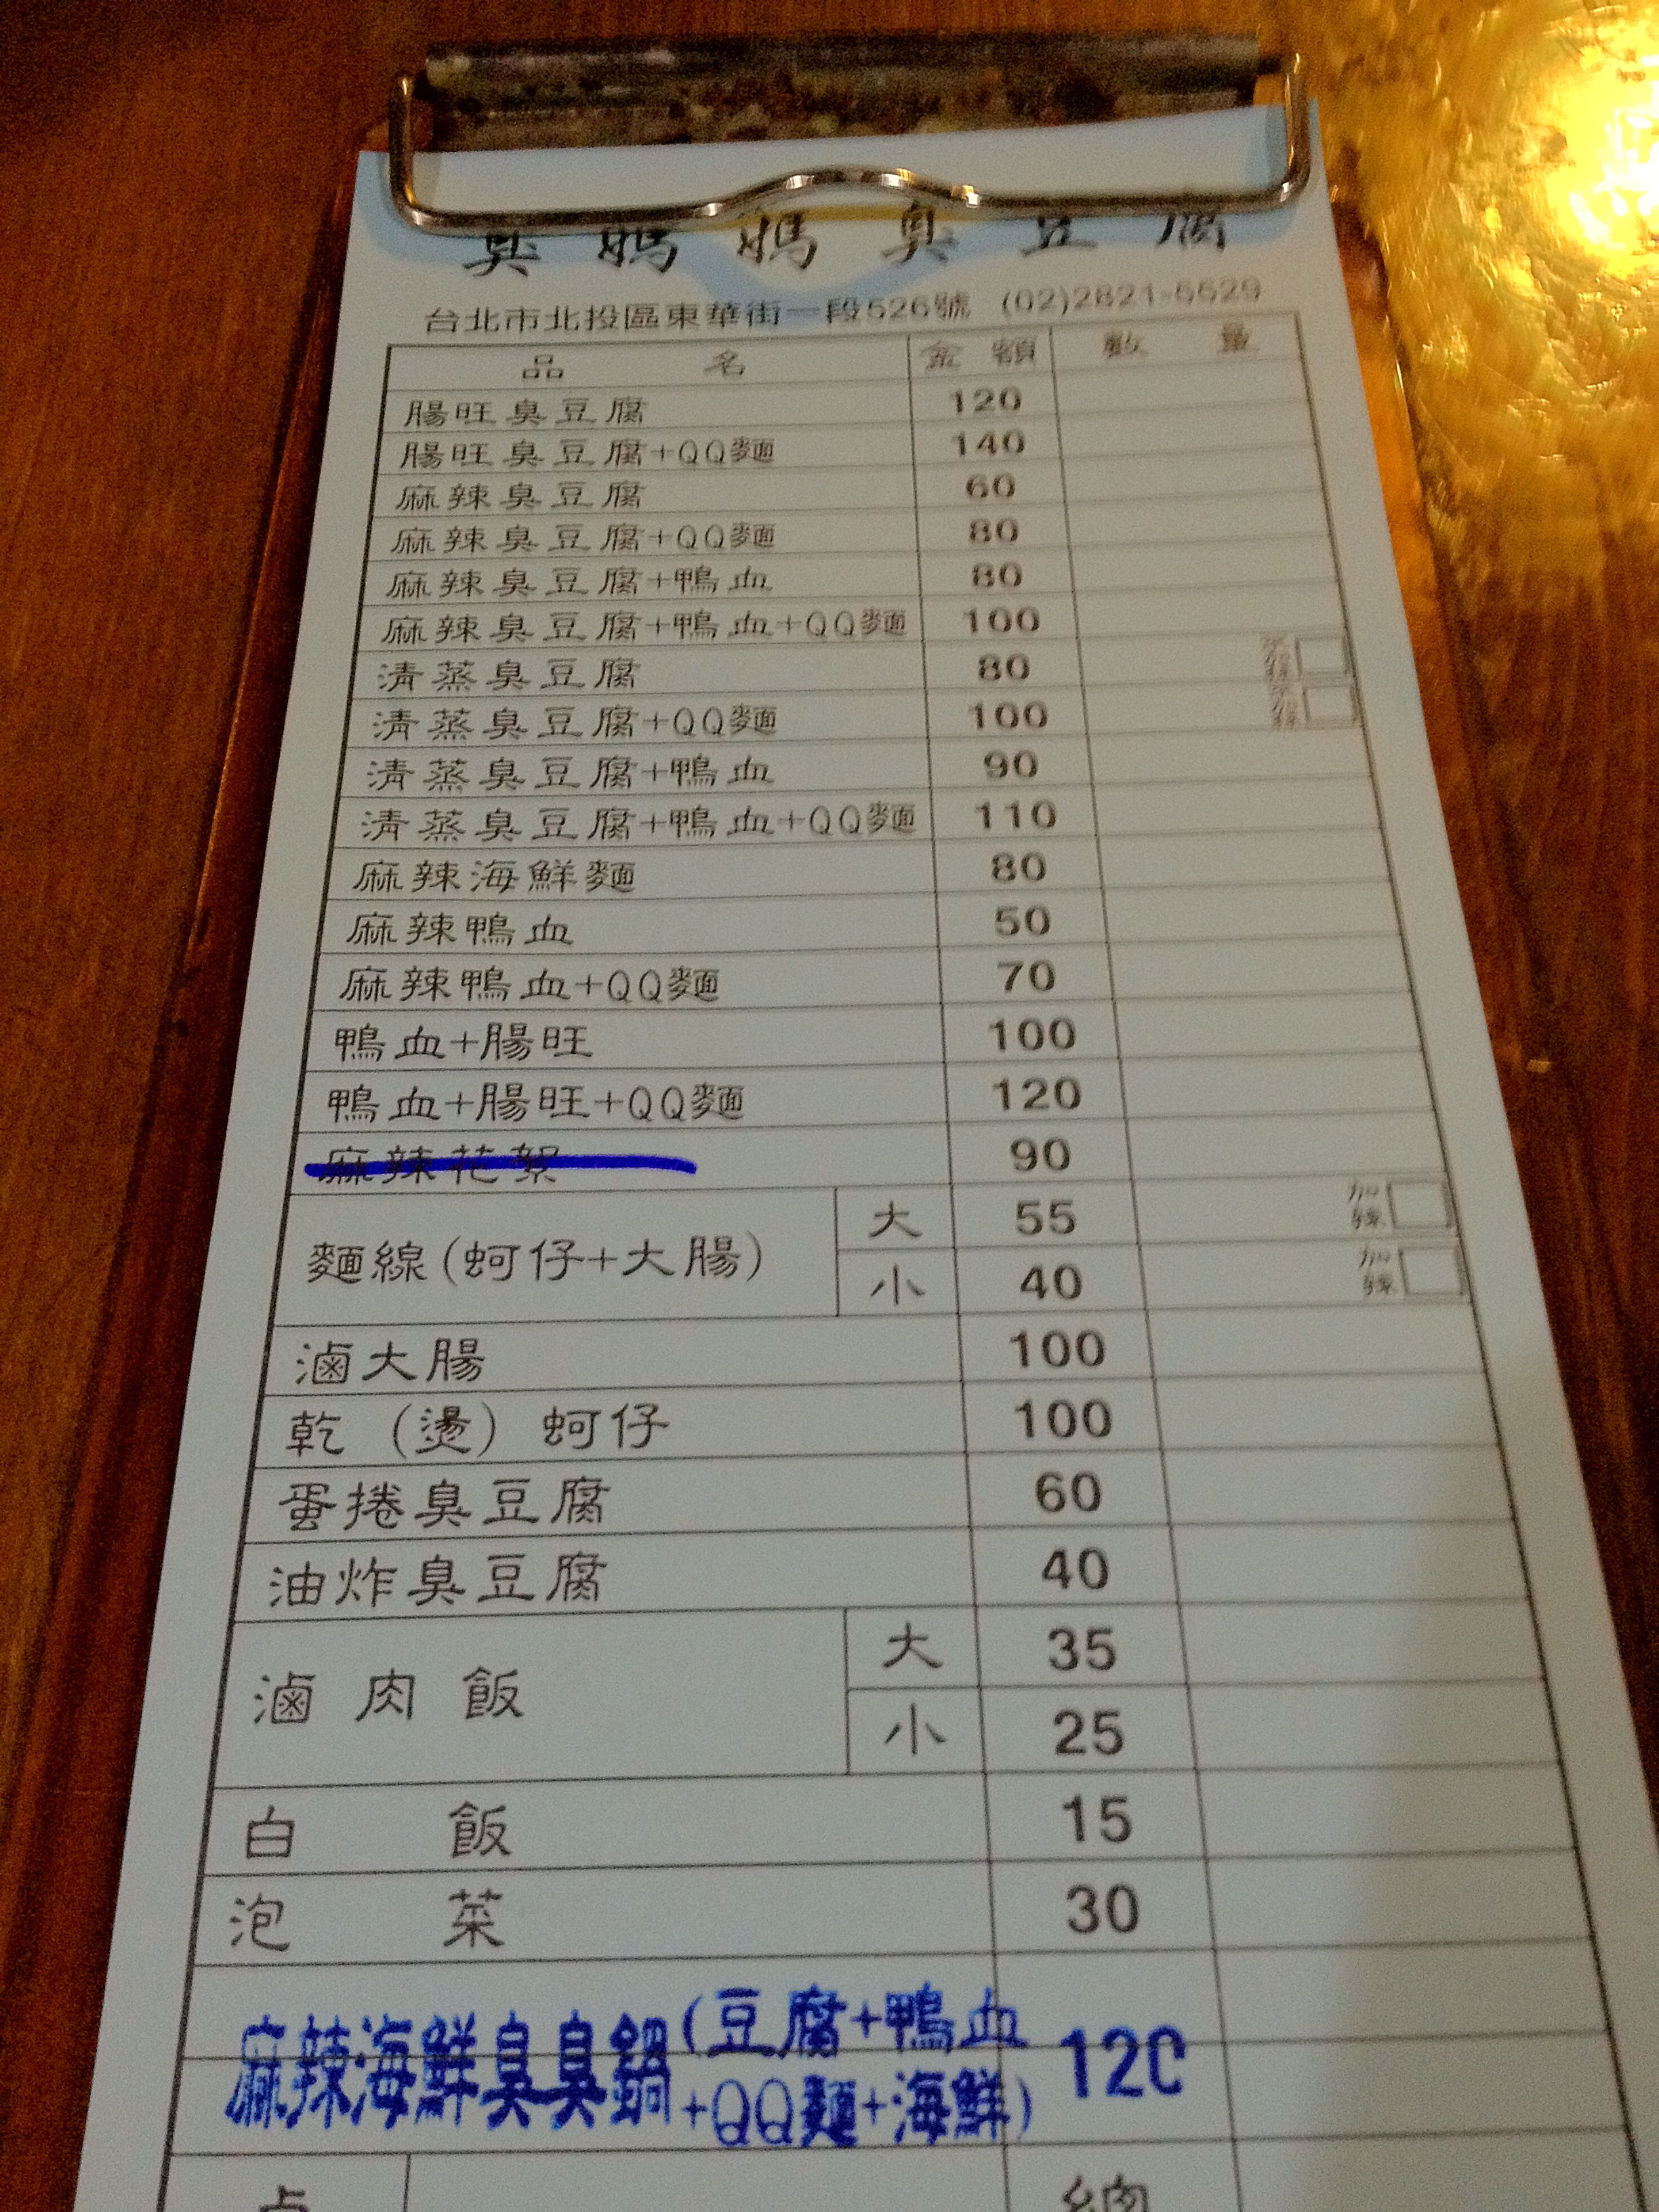 臭媽媽臭豆腐
台北市北投區東華街一段526號 (02)2821-5529
品名 金額 數量
腸旺臭豆腐 120
腸旺臭豆腐+QQ麵 140
麻辣臭豆腐 60
麻辣臭豆腐+QQ麵 80
麻辣臭豆腐+鴨血 80
麻辣臭豆腐+鴨血+QQ麵 100
清蒸臭豆腐 80
清蒸臭豆腐+QQ麵 100
清蒸臭豆腐+鴨血 90
清蒸臭豆腐+鴨血+QQ麵 110
麻辣海鮮麵 80
麻辣鴨血 50
麻辣鴨血+QQ麵 70
鴨血+腸旺 100
鴨血+腸旺+QQ麵 120
麻辣花絮 90
麵線(蚵仔+大腸) 大 55 加辣
小 40 加辣
滷大腸 100
乾(燙)蚵仔 100
蛋捲臭豆腐 60
油炸臭豆腐 40
滷肉飯 大 35
小 25
白飯 15
泡菜 30
麻辣海鮮臭臭鍋(豆腐+鴨血
+QQ麵+海鮮) 120